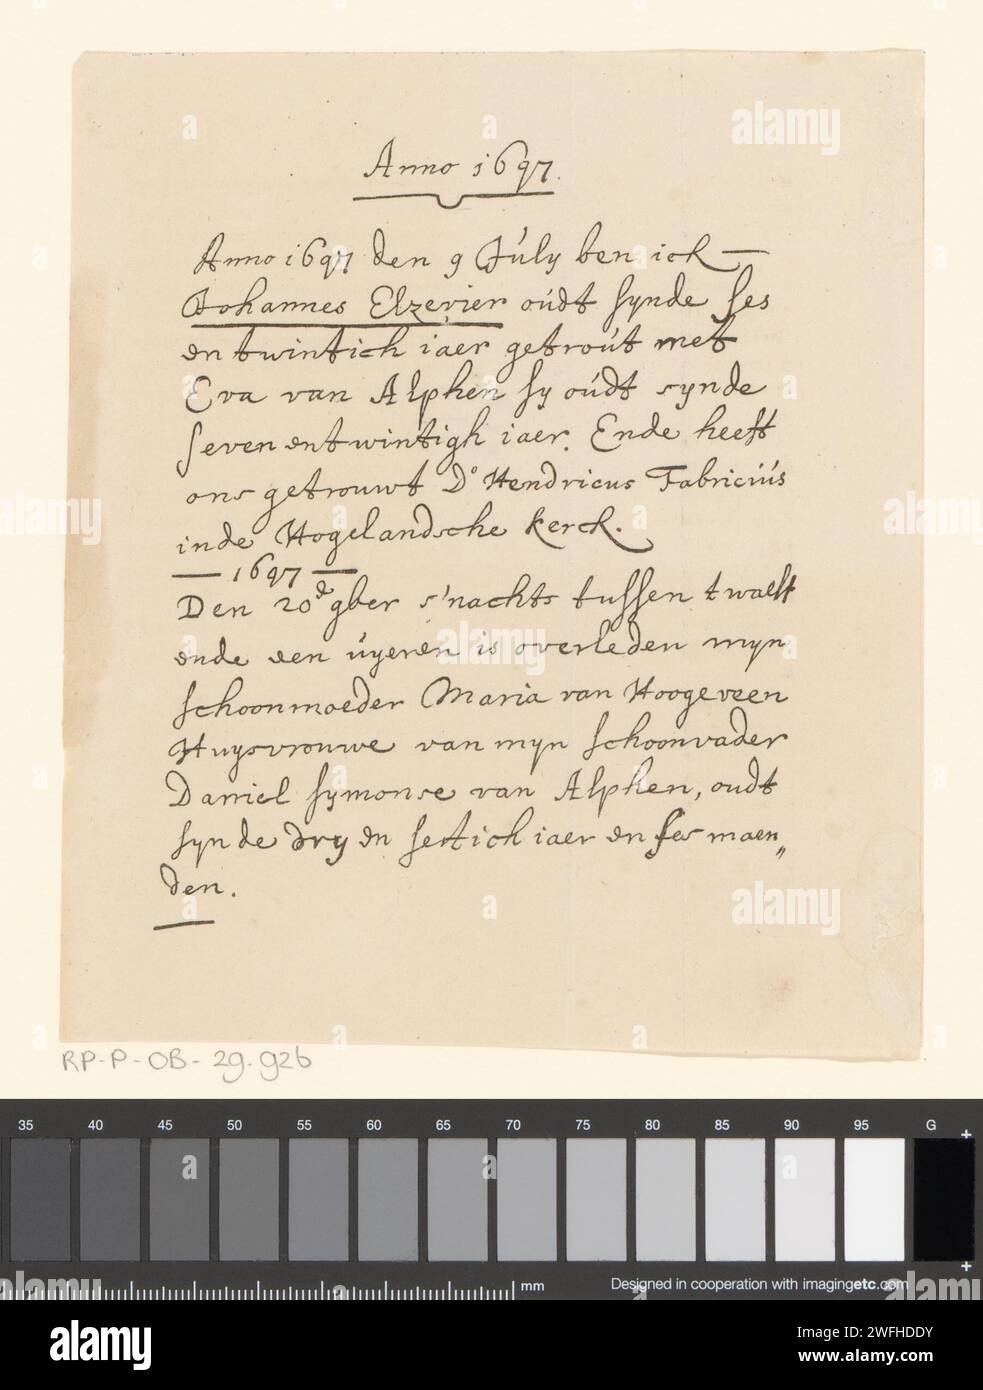 Anno 1697.
Anno 1697 den 9 July ben ick —
Johannes Elzevier oúdt synde ses
en twintich iaer getroút met
Eva van Alphen sy oúdt synde
seven entwintigh iaer. Ende heeft
ons getrouwt Do Hendricus Fabriciús
inde Hogelandsche Kerck.
— 1697 —
Den 20de 9ber s'nachts tussen twaelf
ende een úyeren is overleden myn
schoonmoeder Maria van Hoogeveen
Huysvrouwe van myn schoonvader
Daniel symonse van Alphen, oudt
synde dry en sestich iaer en ses maen„
den.
RP-P-OB-29.926
35 40 45 50 55 60 65 70 75 80 85 90 95 G
mm
Designed in cooperation with imagingetc.com
alamy
alamy
Image ID: 2WFHDDY
www.alamy.com